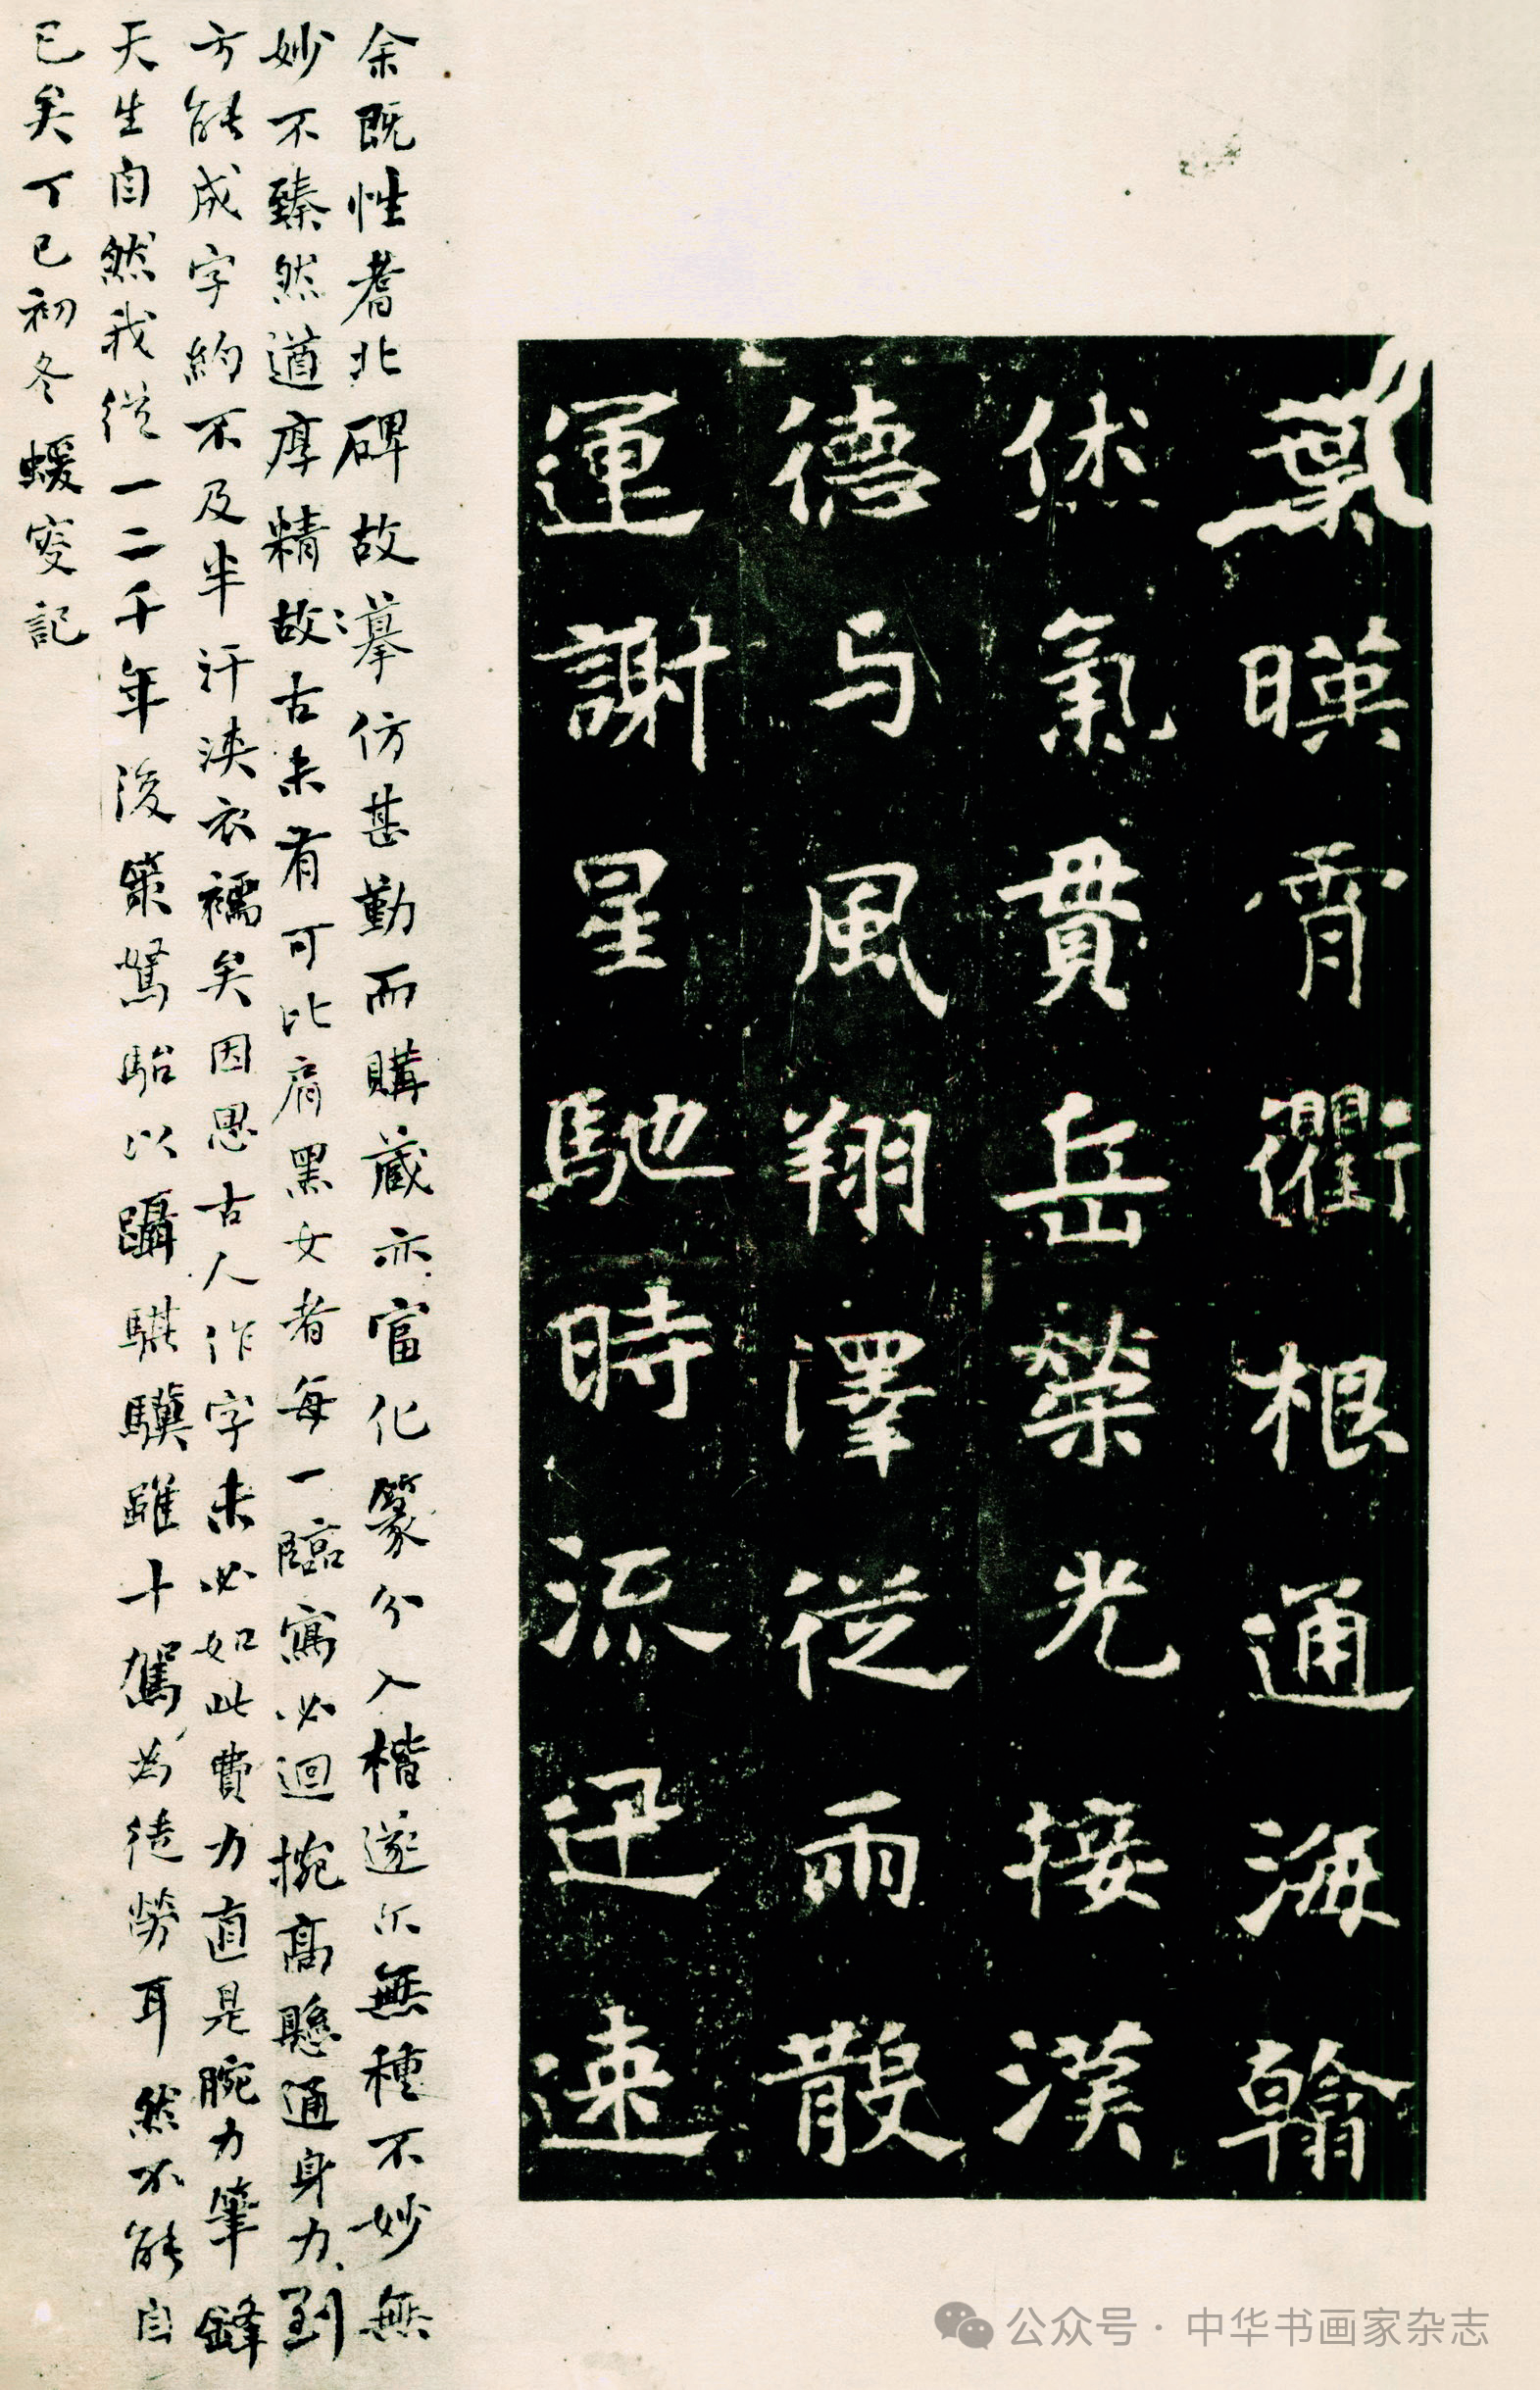 葉暎霄衢根通海翰
烋氣貫岳榮光接漢
德与風翔澤從雨散
運謝星馳時流迅速
余既性耆北碑故摹仿甚勤而購藏亦富化篆分入楷遂尒無種不妙無
妙不臻然遒厚精故古未有可比肩黑女者每一臨寫必迴捥高懸通身力到
方能成字約不及半汗浹衣襦矣因思古人作字未必如此費力直是腕力筆鋒
天生自然我從一二千年後策駑駘以躡騏驥雖十駕為徒勞耳然不能自
已矣丁巳初冬蝯叟記
公众号·中华书画家杂志